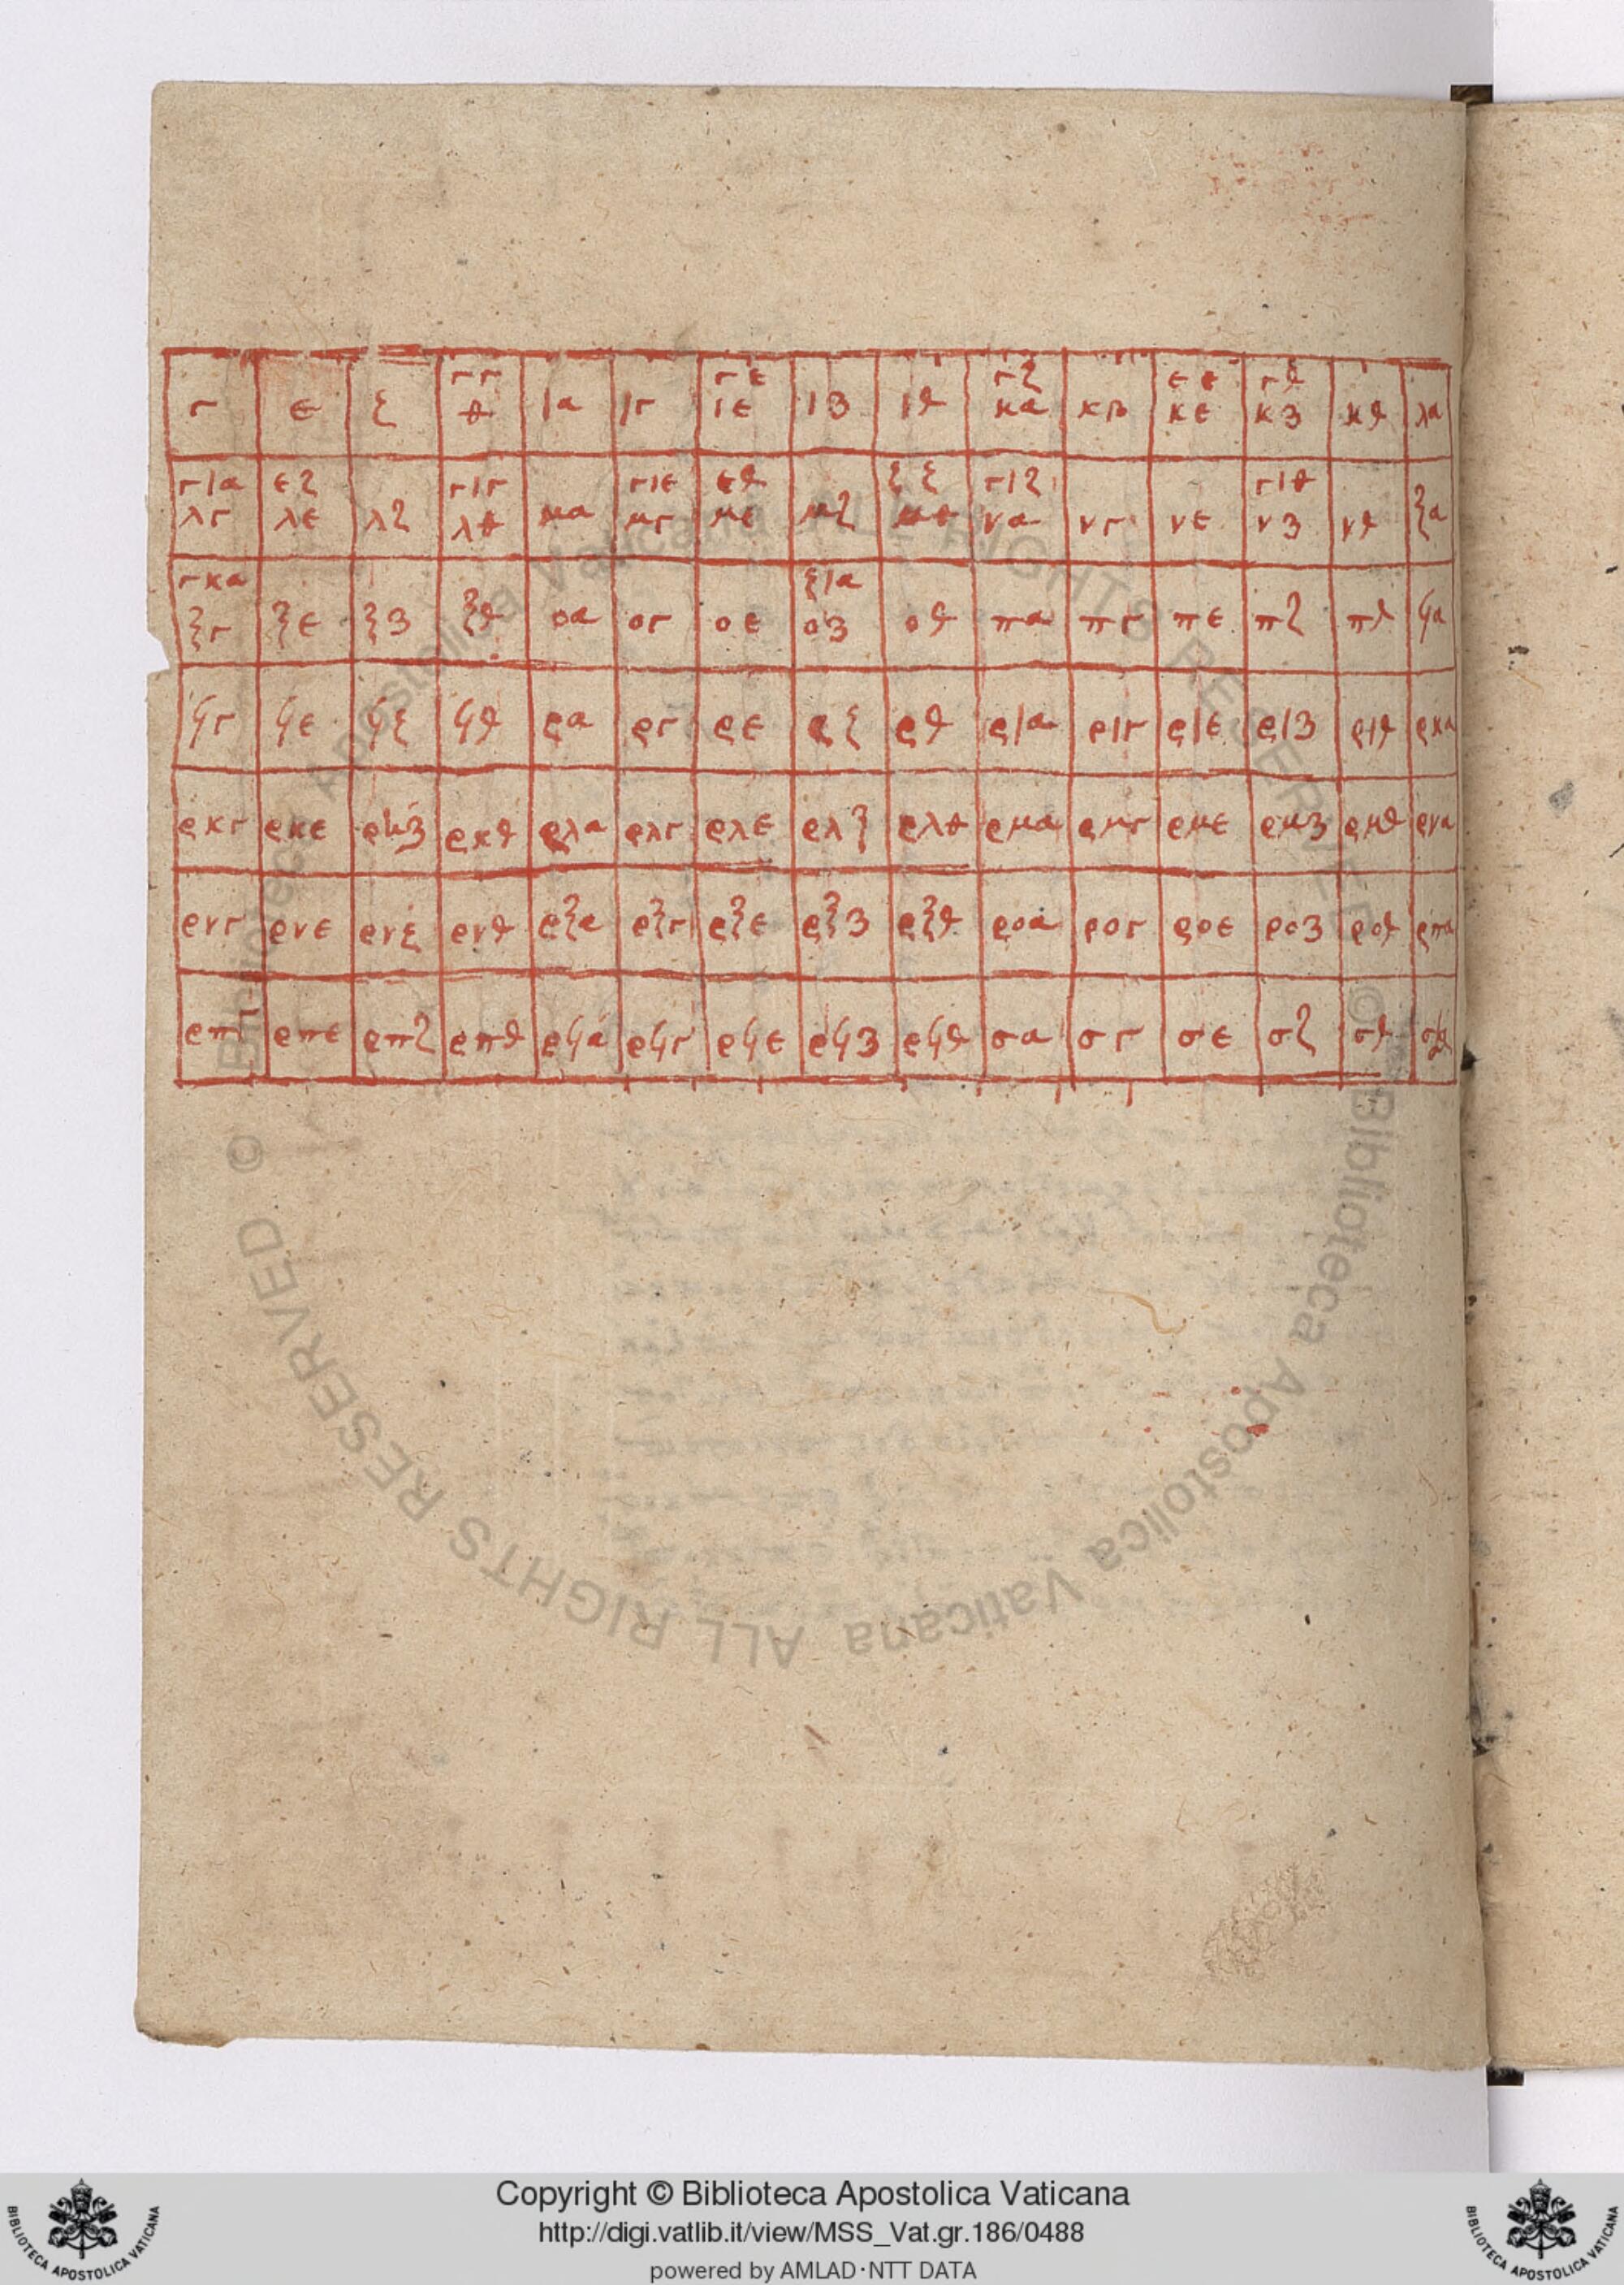 γ ε ζ γγ θ ια ιγ γε ιε ιζ ιθ γζ κα κβ εε κε γθ κζ κθ λα
για λγ εζ λε λζ γιγ λθ μα γιε μγ εθ με μζ ζζ μθ γιζ να νγ νε γιθ νζ νθ ξα
γκα ξγ ξε ξζ ξθ οα ογ οε ζια οζ οθ πα πγ πε πζ πθ ϟα
ϟγ ϟε ϟζ ϟθ ρα ργ ρε ρζ ρθ ρια ριγ ριε ριζ ριθ ρκα
ρκγ ρκε ρκζ ρκθ ρλα ρλγ ρλε ρλζ ρλθ ρμα ρμγ ρμε ρμζ ρμθ ρνα
ρνγ ρνε ρνζ ρνθ ρξα ρξγ ρξε ρξζ ρξθ ροα ρογ ροε ροζ ροθ ρπα
ρπγ ρπε ρπζ ρπθ ρϟα ρϟγ ρϟε ρϟζ ρϟθ σα σγ σε σζ σθ
Copyright © Biblioteca Apostolica Vaticana
http://digi.vatlib.it/view/MSS_Vat.gr.186/0488
powered by AMLAD·NTT DATA
BIBLIOTECA APOSTOLICA VATICANA
BIBLIOTECA APOSTOLICA VATICANA
© Biblioteca Apostolica Vaticana ALL RIGHTS RESERVED
© Biblioteca Apostolica Vaticana ALL RIGHTS RESERVED